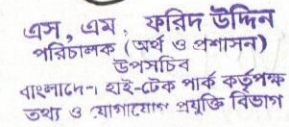 এস, এম, ফরিদ উদ্দিন
পরিচালক (অর্থ ও প্রশাসন)
উপসচিব
বাংলাদেশ হাই-টেক পার্ক কর্তৃপক্ষ
তথ্য ও যোগাযোগ প্রযুক্তি বিভাগ